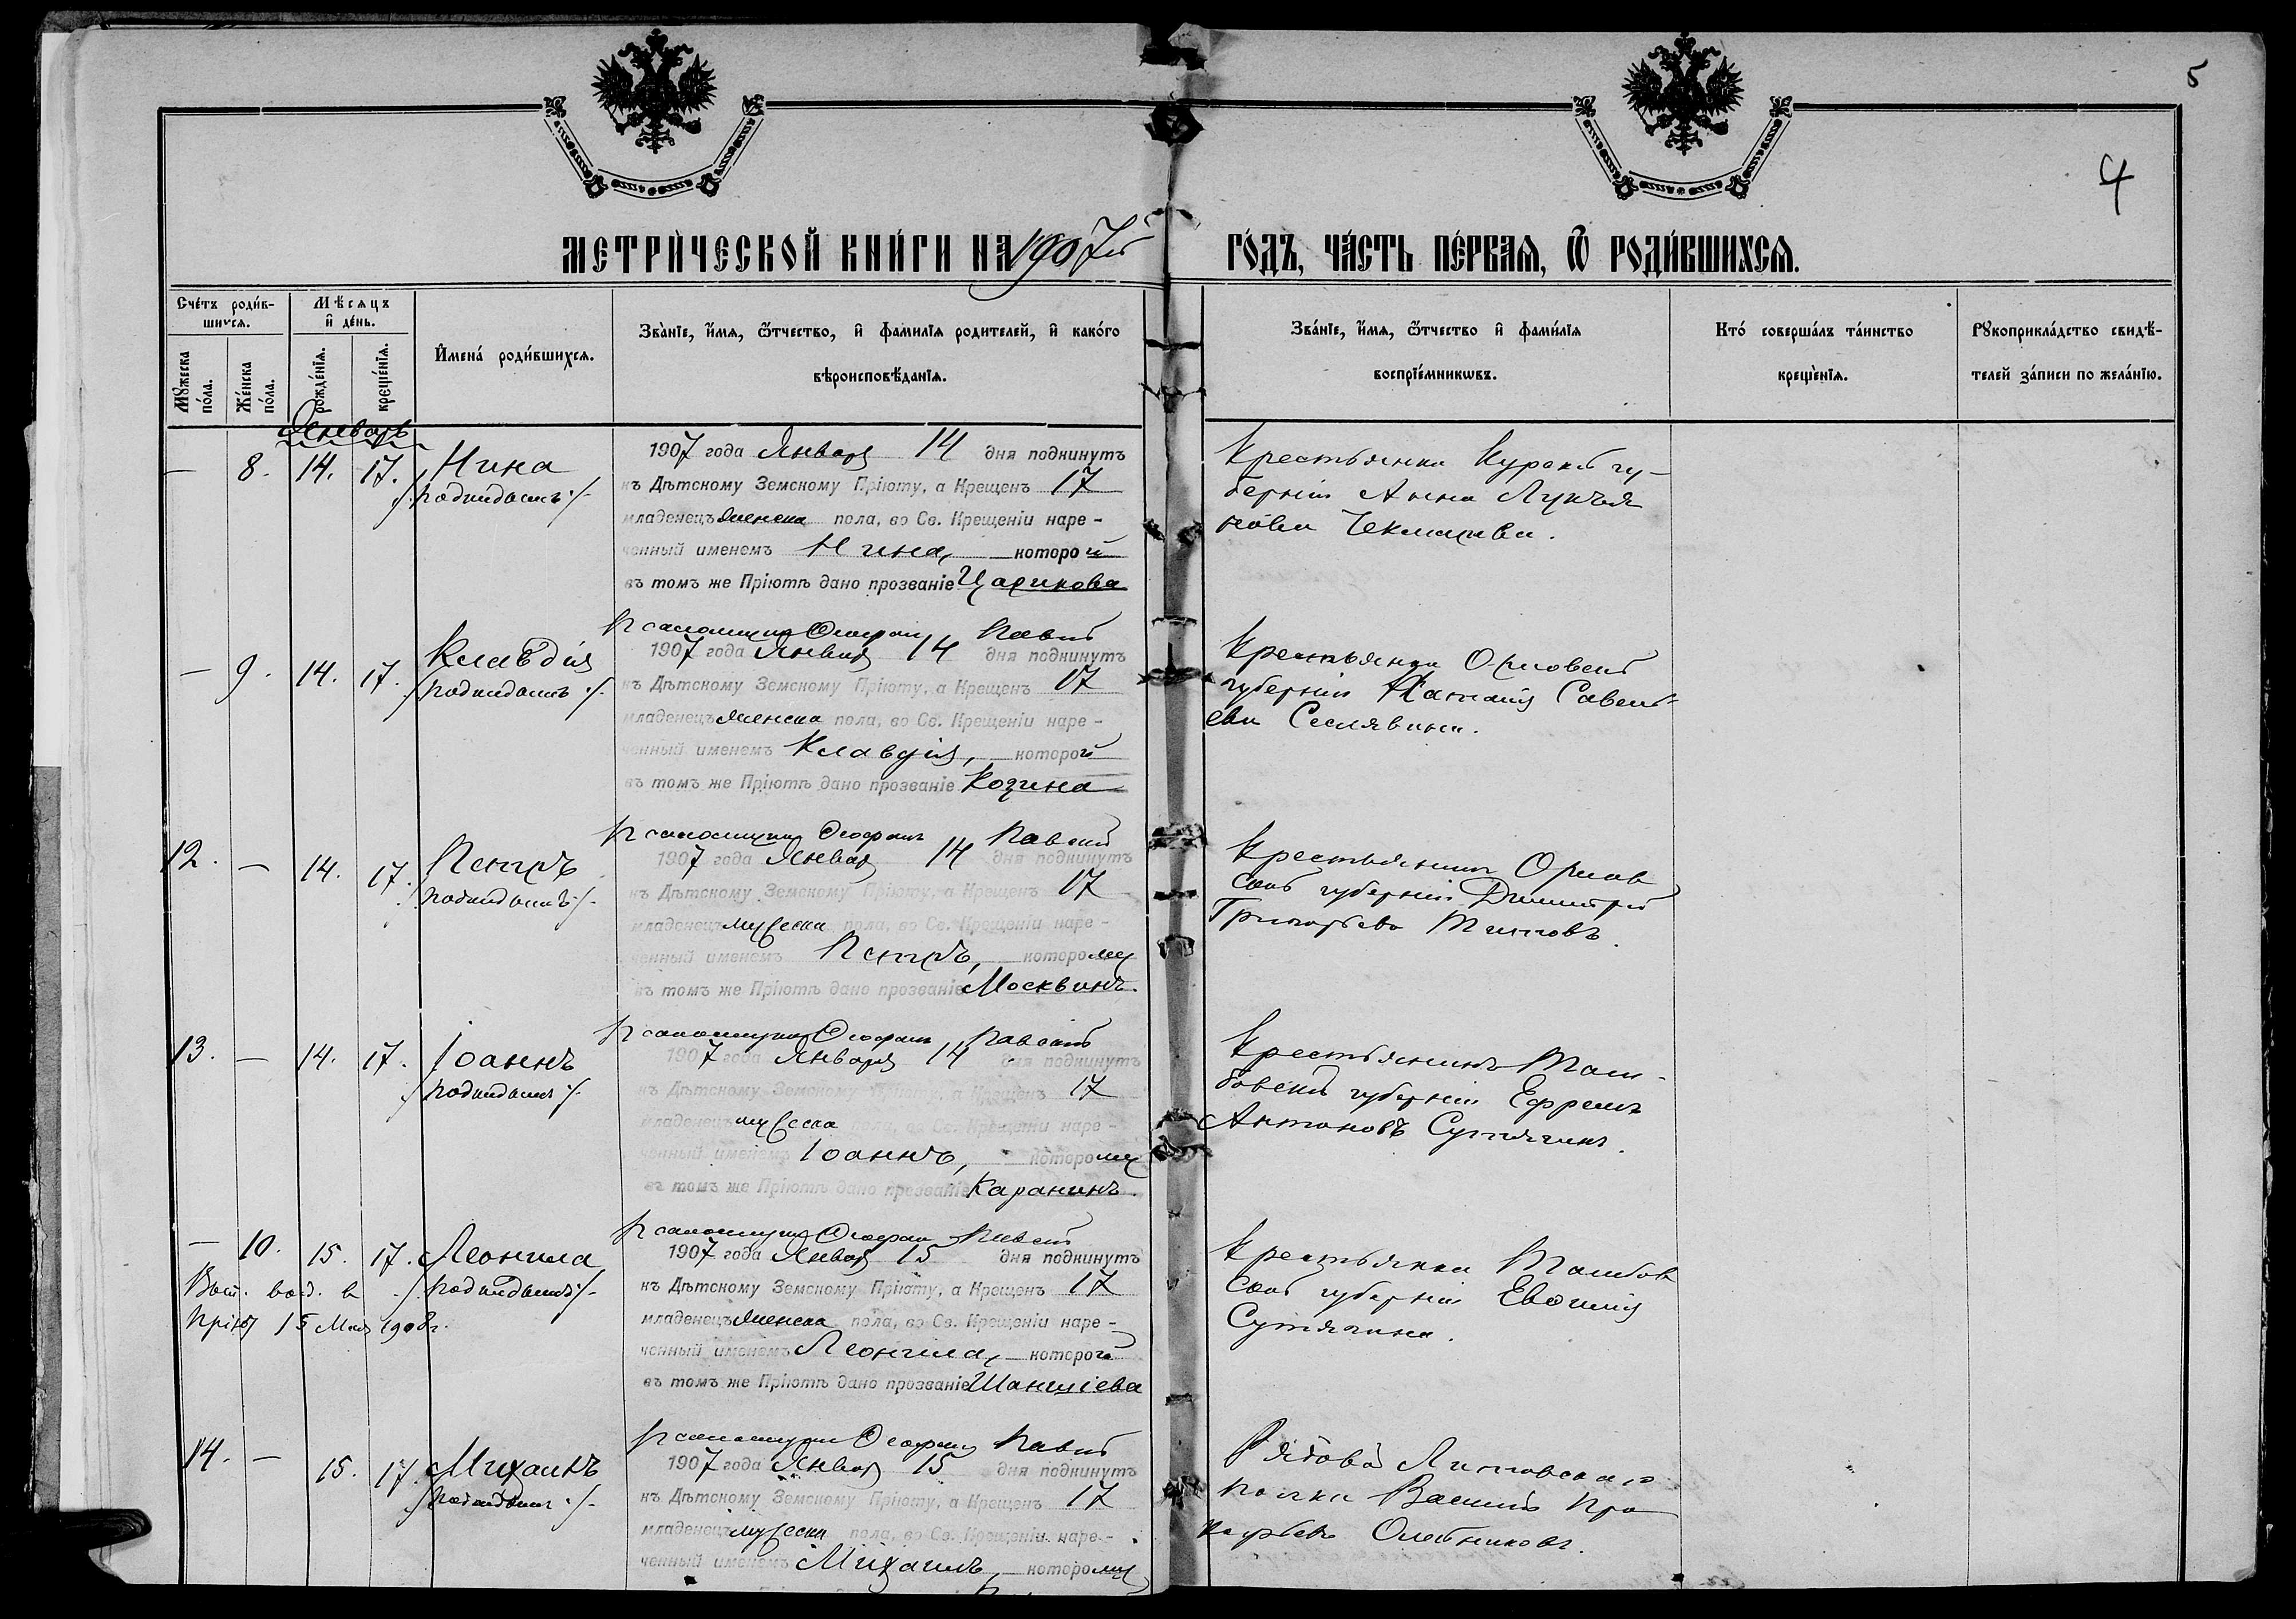 5
4
МЕТРИ́ЧЕСКОЙ КНИ́ГИ НА 1907й ГО́ДЪ, ЧА́СТЬ ПЕ́РВАЯ, Ѿ РОДИ́ВШИХСЯ.
Сче́тъ роди́в-
шихся.
Мѣсяцъ
и де́нь.
Мꙋжеска
по́ла.
Же́нска
по́ла.
рожде́нїя.
креще́нїя.
Имена́ роди́вшихся.
Зва́нїе, и́мя, ѻ҆́тчество, и фами́лїя родителей, и како́го
вѣроисповѣ́данїя.
Зва́нїе, и́мя, ѻ҆́тчество и фами́лїя
воспрїе́мникѡвъ.
Кто́ соверша́лъ та́инство
креще́нїя.
Рꙋкоприкла́дство свидѣ́-
телей за́писи по жела́нїю.
Январь
— 8. 14. 17. Нина
/:подкидышъ:/
1907 года Января 14 дня подкинутъ
къ Дѣтскому Земскому Пріюту, а Крещенъ 17
младенецъ женска пола, во Св. Крещеніи наре-
ченный именемъ Нина, которой
въ томъ же Пріютѣ дано прозваніе Царикова
Крестьянка Курской гу-
берніи Анна Лукъя
нова
Псаломщикъ Ѳеофанъ
— 9. 14. 17. Клавдія
/:подкидышъ:/
1907 года Января 14 дня подкинутъ
къ Дѣтскому Земскому Пріюту, а Крещенъ 17
младенецъ женска пола, во Св. Крещеніи наре-
ченный именемъ Клавдія, которой
въ томъ же Пріютѣ дано прозваніе Козина
Крестьянка Орловской
губерніи Наталія Савель-
ева Селявина.
Псаломщикъ Ѳеофанъ
12. — 14. 17. Петръ
/:подкидышъ:/
1907 года Января 14 дня подкинутъ
къ Дѣтскому Земскому Пріюту, а Крещенъ 17
младенецъ мужеска пола, во Св. Крещеніи наре-
ченный именемъ Петръ, которому
въ томъ же Пріютѣ дано прозваніе Москвинъ.
Крестьянинъ Орлов
ской губерніи Димитрій
Григорьевъ Титовъ.
Псаломщикъ Ѳеофанъ
13. — 14. 17. Іоаннъ
/:подкидышъ:/
1907 года Января 14 дня подкинутъ
къ Дѣтскому Земскому Пріюту, а Крещенъ 17
младенецъ мужеска пола, во Св. Крещеніи наре-
ченный именемъ Іоаннъ, которому
въ томъ же Пріютѣ дано прозваніе Каранинъ.
Крестьянинъ Там-
бовской губерніи Ефремъ
Антоновъ Сутягинъ.
Псаломщикъ Ѳеофанъ
— 10. 15. 17. Леонила
/:подкидышъ:/
15 Мая 1908г.
1907 года Января 15 дня подкинутъ
къ Дѣтскому Земскому Пріюту, а Крещенъ 17
младенецъ женска пола, во Св. Крещеніи наре-
ченный именемъ Леонила, которой
въ томъ же Пріютѣ дано прозваніе Шаншіева
Крестьянка Тамбов
ской губерніи Евѳимія
Сутягина.
Псаломщикъ Ѳеофанъ
14. — 15. 17. Михаилъ
/:подкидышъ:/
1907 года Января 15 дня подкинутъ
къ Дѣтскому Земскому Пріюту, а Крещенъ 17
младенецъ мужеска пола, во Св. Крещеніи наре-
ченный именемъ Михаилъ, которому
Рядовой Литовскаго
полка Василій Про
Олейниковъ.